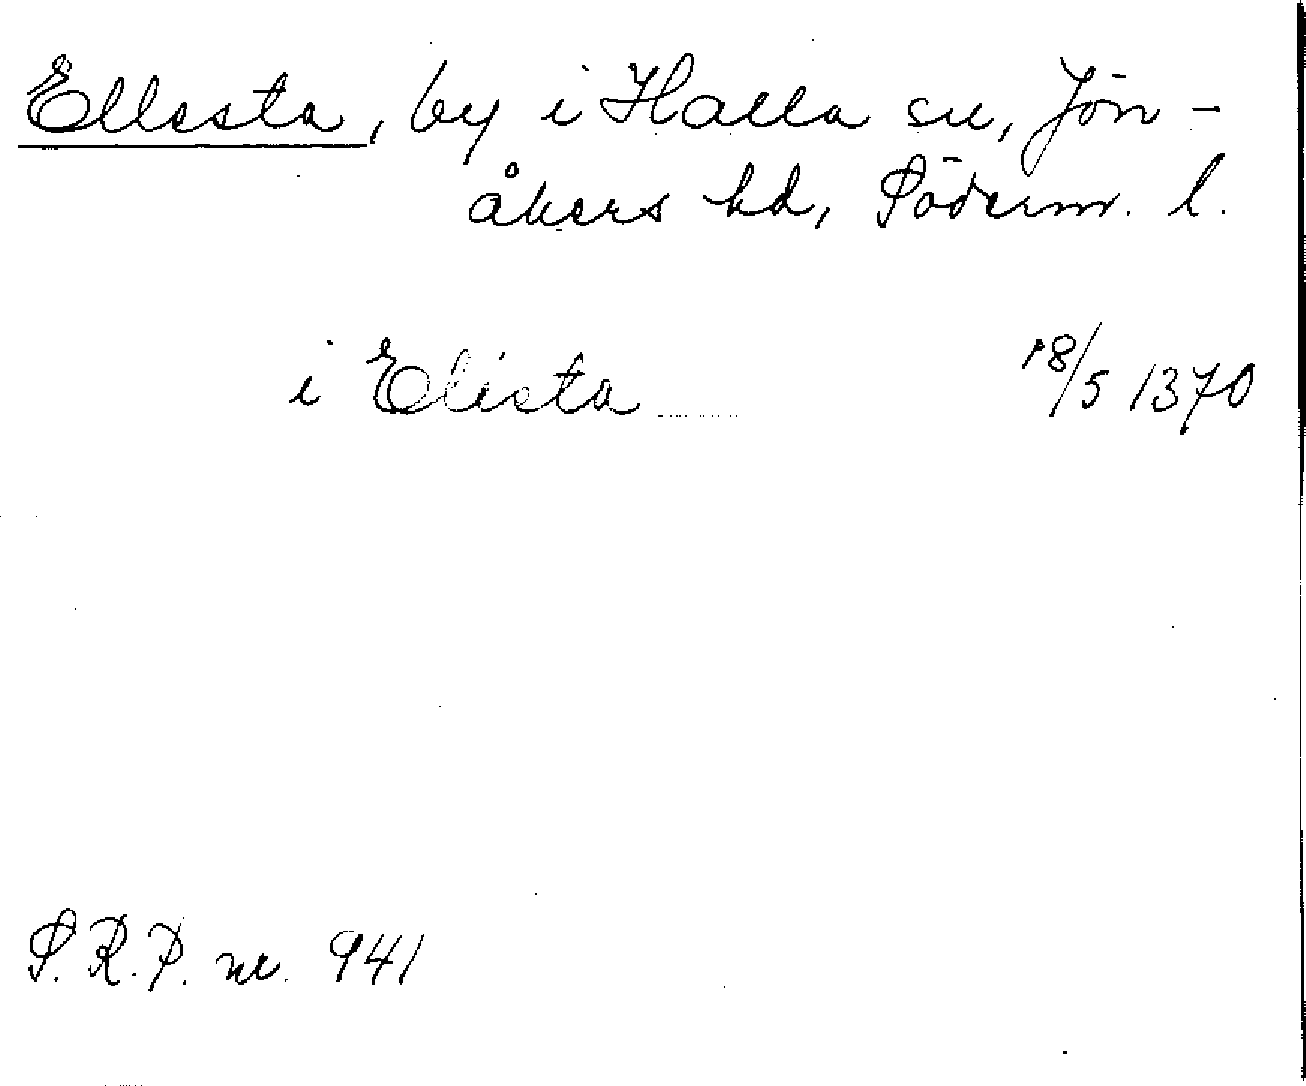 Ellesta, by i Halla sn, Jön-
åkers hd, Söderm. l.
i Elista 18/5 1370
S.R.P. nr. 941